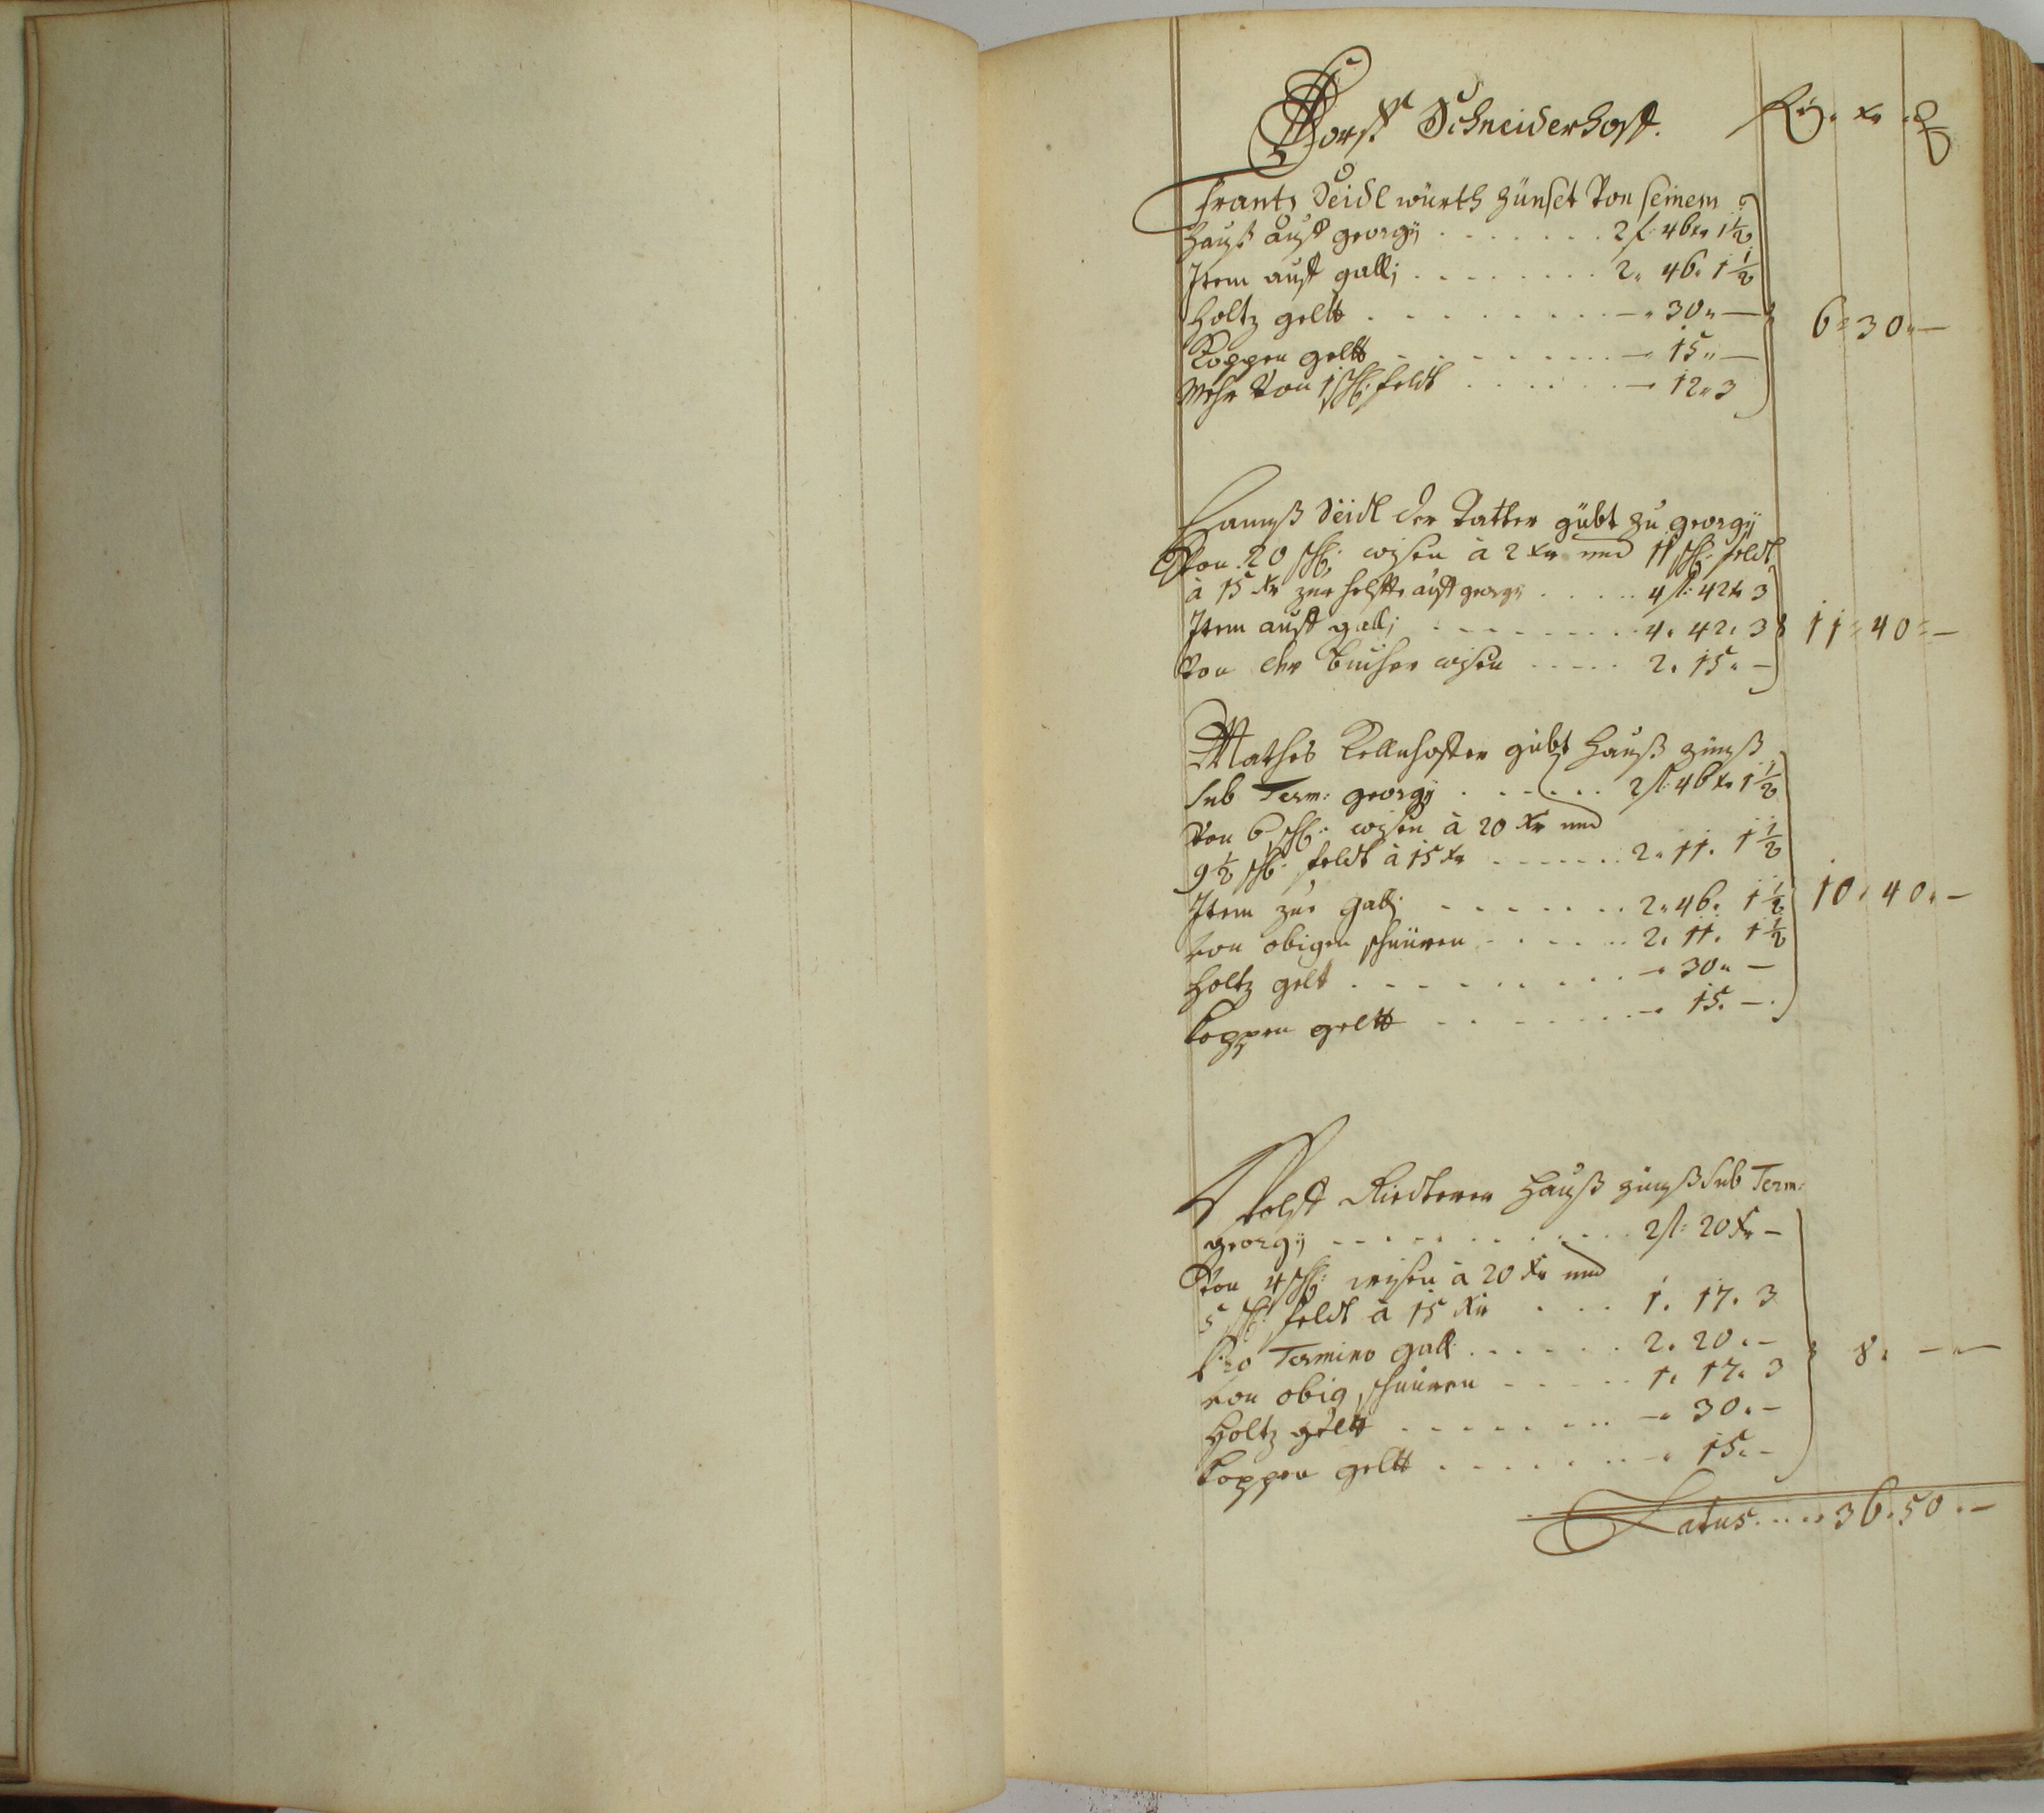 Dorff Schneiderhoff. fl. xr ₰
Frantz Seidl würth zünset Von seinem
Hauß auff georgÿ . . . . . . . 2 fl: 46 xr 1½
Item auff gallj . . . . . . . . 2. 46. 1½
Holtz geltt . . . . . . . . . — 30. —
Koppen geltt . . . . . . . — 15. — 6. 30. —
Mehr Von 1 sch: feldt . . . . . . — 12. 3
Hannß Seidl der Vatter gübt zu georgÿ
Von 20 sch: wisen à 2 xr und 11 sch: feldt
à 15 xr zur helffte auff georgÿ . . . . . 4 fl: 42 xr 3
Item auff gallj . . . . . . . . . 4. 42. 3 11. 40. —
Von der wisen . . . . . 2. 15. —
Mathes Kellnhoffer gübt Hauß zünß
Sub Term: georgÿ . . . . . . 2 fl: 46 xr 1½
Von 6 sch: wisen à 20 xr und
9½ sch: feldt à 15 xr . . . . . . . 2. 11. 1½
Item zue Gallj . . . . . . . . 2. 46. 1½ 10. 40. —
von obigen schnüren . . . . . . 2. 11. 1½
Holtz gelt . . . . . . . . . — 30. —
Koppen geltt . . . . . . . — 15. —
Wolff Hauß zünß Sub Term:
georgÿ . . . . . . . . . . . 2 fl: 20 xr —
Von 4 sch: wisen à 20 xr und
5 sch: feldt à 15 xr . . . 1. 17. 3
Pro Termino gall: . . . . . . 2. 20. — 8. — —
von obig schnüren . . . . . 1. 17. 3
Holtz geltt . . . . . . . — 30. —
Koppen geltt . . . . . . . — 15. —
Latus . . . . 36. 50. —